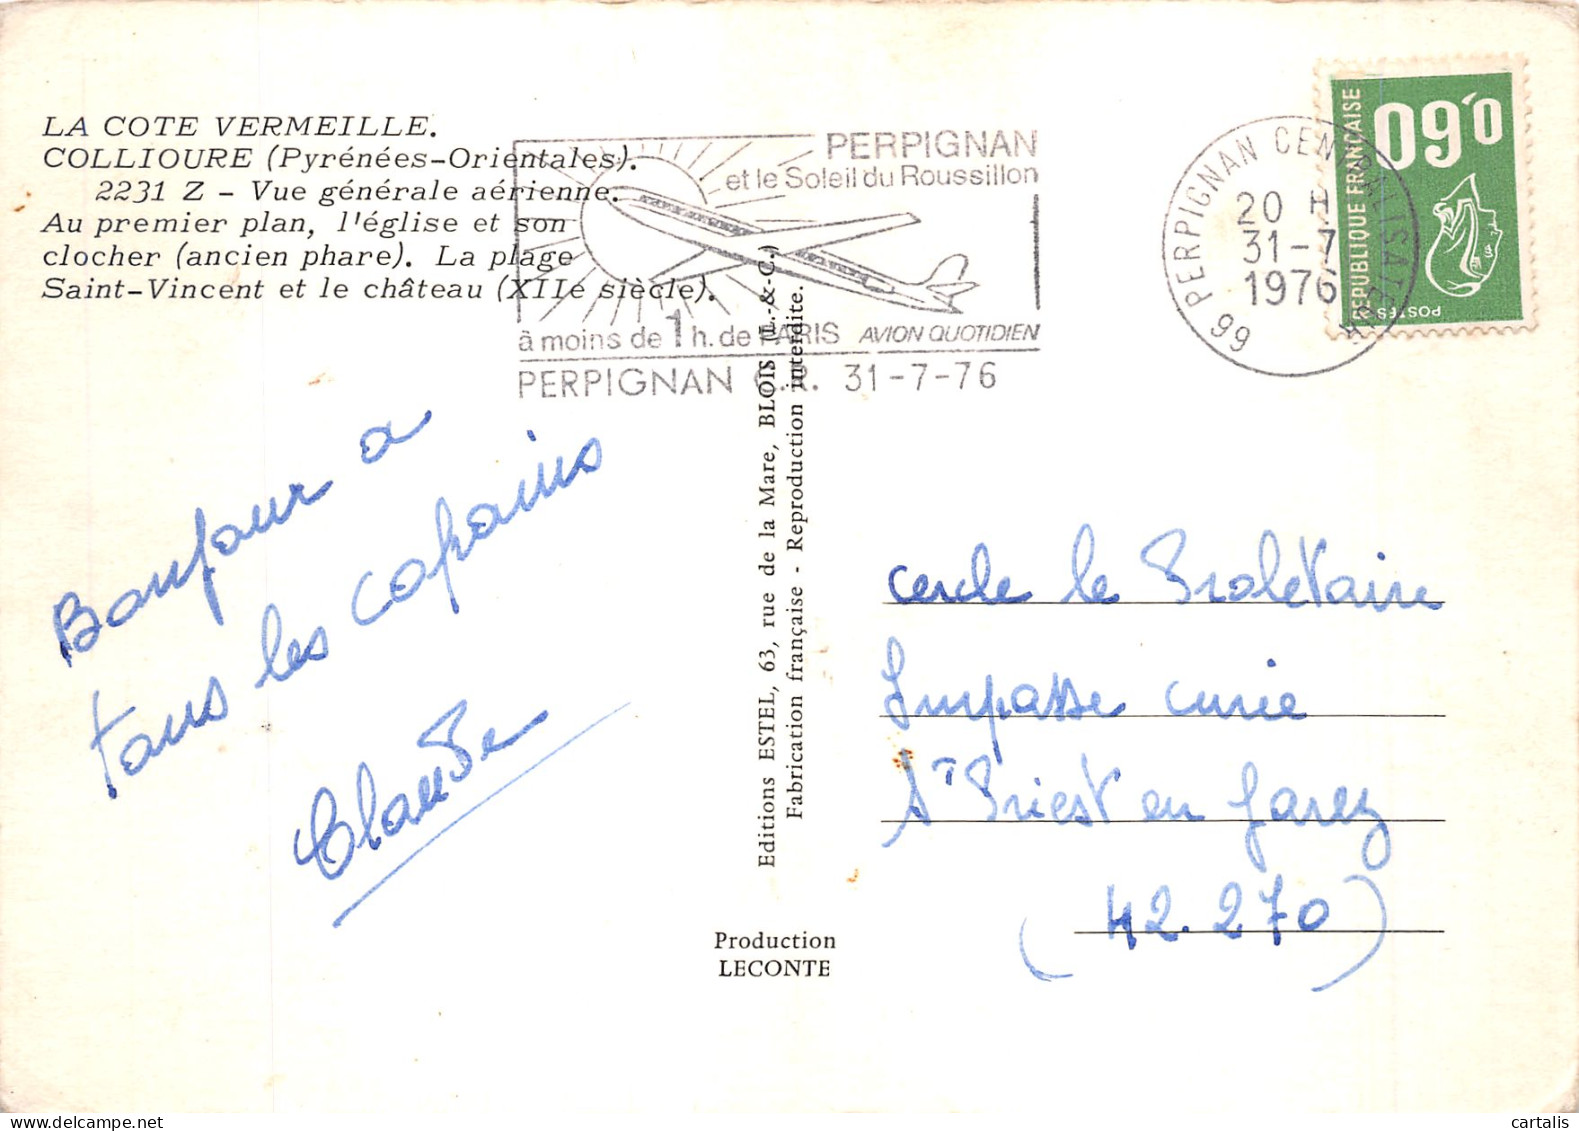 LA COTE VERMEILLE.
COLLIOURE (Pyrénées-Orientales).
2231 Z - Vue générale aérienne.
Au premier plan, l'église et son
clocher (ancien phare). La plage
Saint-Vincent et le château (XIIe siècle).
PERPIGNAN
et le Soleil du Roussillon
à moins de 1 h. de PARIS AVION QUOTIDIEN
PERPIGNAN C.R. 31-7-76
66 PERPIGNAN CENTRALISATEUR
20 H
31-7
1976
0,60
REPUBLIQUE FRANÇAISE
POSTES
Bonjour a
tous les copains
Claude
Editions ESTEL, 63, rue de la Mare, BLOIS (L.-&-C.)
Fabrication française - Reproduction interdite.
Production
LECONTE
cercle le Proletaire
Impasse curie
St Priest en Jarez
(42.270)
www.delcampe.net
cartalis